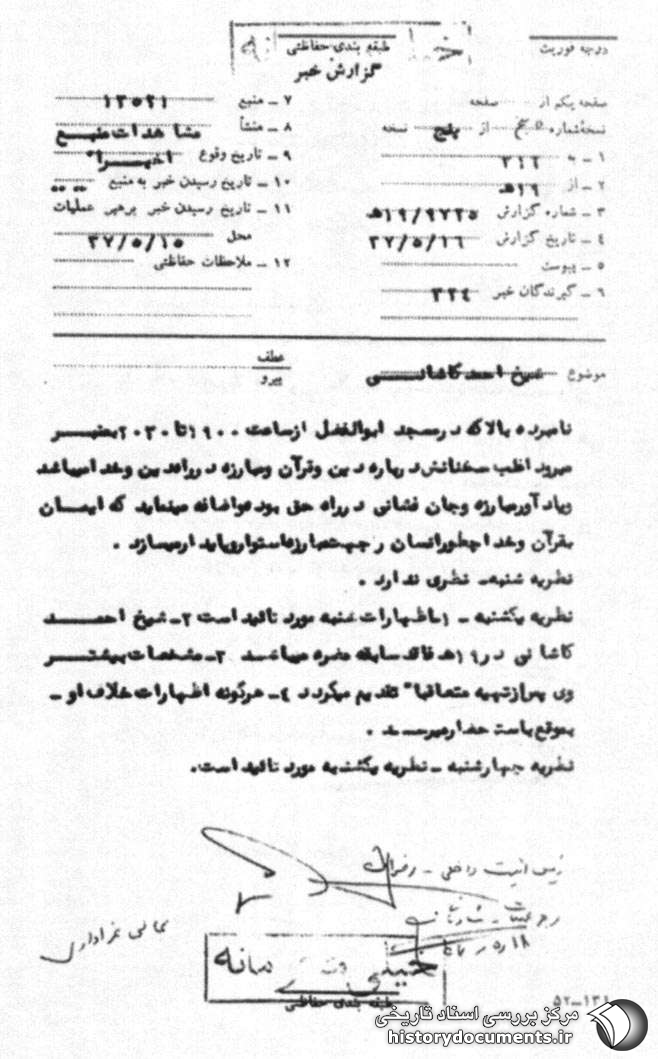 درجه فوریت
طبقه بندی حفاظتی
گزارش خبر
صفحه یکم از صفحه
نسخه شماره پنج از پنج نسخه
۱ ـ به ۳۱۲
۲ ـ از ۱۹هـ
۳ ـ شماره گزارش ۱۹/۹۷۲۵هـ
۴ ـ تاریخ گزارش ۳۷/۵/۱۶
۵ ـ پیوست
۶ ـ گیرندگان خبر ۳۲۴
۷ ـ منبع ۱۳۵۲۱
۸ ـ منشأ مشاهدات منبع
۹ ـ تاریخ وقوع اخیراً
۱۰ ـ تاریخ رسیدن خبر به منبع
۱۱ ـ تاریخ رسیدن خبر برهبر عملیات
محل ۳۷/۵/۱۵
۱۲ ـ ملاحظات حفاظتی
موضوع شیخ احمد کاشانی
عطف
پیرو
نامبرده بالا که در مسجد ابوالفضل از ساعت ۱۹۰۰ تا ۲۰۳۰ بمنبر
میرود اغلب سخنانش درباره دین و قرآن و مبارزه در راه دین و خدا میباشد
و یادآور مبارزه و جان فشانی در راه حق بوده و اضافه مینماید که ایمان
بقرآن و خدا چطور انسان را جهت مبارزه استوار و پایدار میسازد .
نظریه شنبه ـ نظری ندارد .
نظریه یکشنبه ـ ۱ـ اظهارات شنبه مورد تائید است ۲ـ شیخ احمد
کاشانی در ۱۹هـ فاقد سابقه مضره میباشد ۳ـ مشخصات بیشتر
وی پس از تهیه متعاقباً تقدیم میگردد ۴ـ هرگونه اظهارات خلاف او ـ
بموقع باستحضار میرسد .
نظریه چهارشنبه ـ نظریه یکشنبه مورد تائید است.
رئیس امنیت داخلی ـ
خیلی محرمانه
طبقه بندی حفاظتی
۵۲ــ۱۳۱
مرکز بررسی اسناد تاریخی
historydocuments.ir